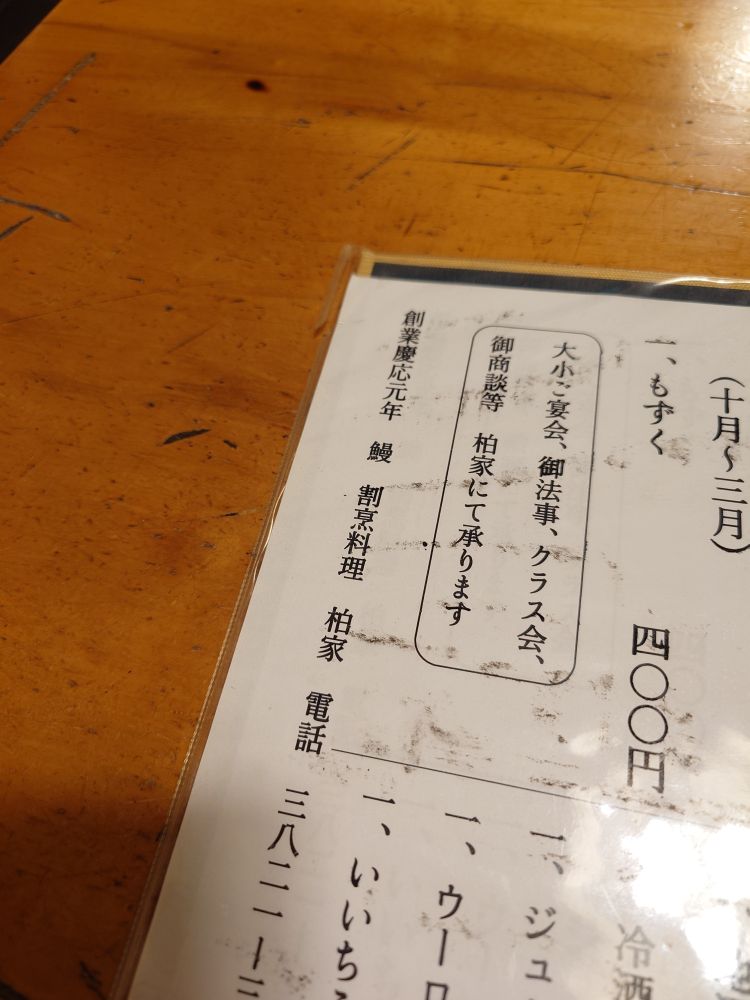 (十月〜三月)
一、もずく 四〇〇円
大小ご宴会、御法事、クラス会、
御商談等 柏家にて承ります
創業慶応元年 鰻 割烹料理 柏家 電話
三八二一ー三
冷酒
一、ジュ
一、ウーロ
一、いいち